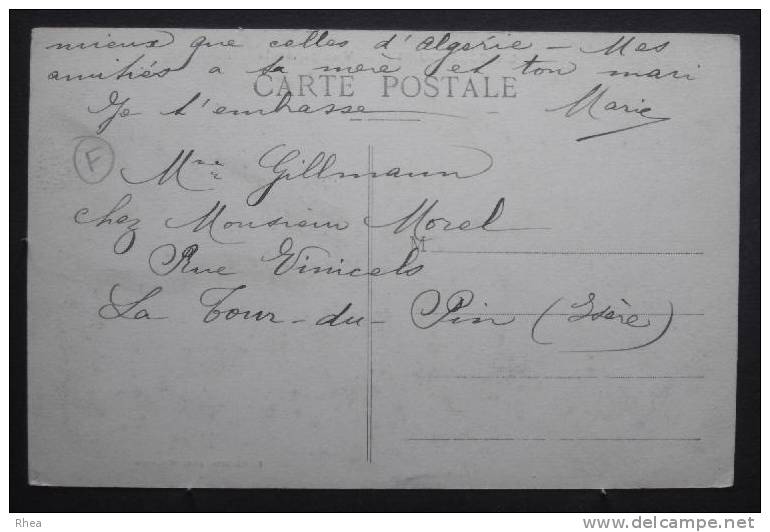 mieux que celles d'Algérie — Mes
amitiés a ta mère et ton mari
CARTE POSTALE
Je t'embrasse Marie
F
Mme Gillmann
chez Monsieur Morel
M
Rue Vinicels
La Tour-du-Pin (Isère)
Rhea
http://www.delcampe.net